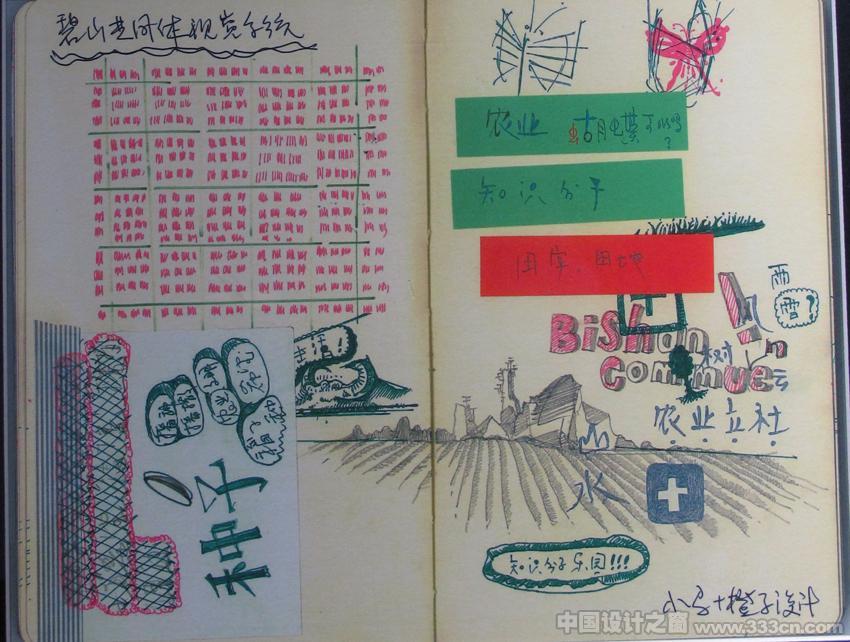 碧山共同体视觉系统
种子
农业 蝴蝶可以吗?
知识分子
田字、田地
雨
雪?
风
BiShan
树
Commune
云
农业立社
山
水
知识分子乐园!!!
小马+橙子设计
中国设计之窗
www.333cn.com